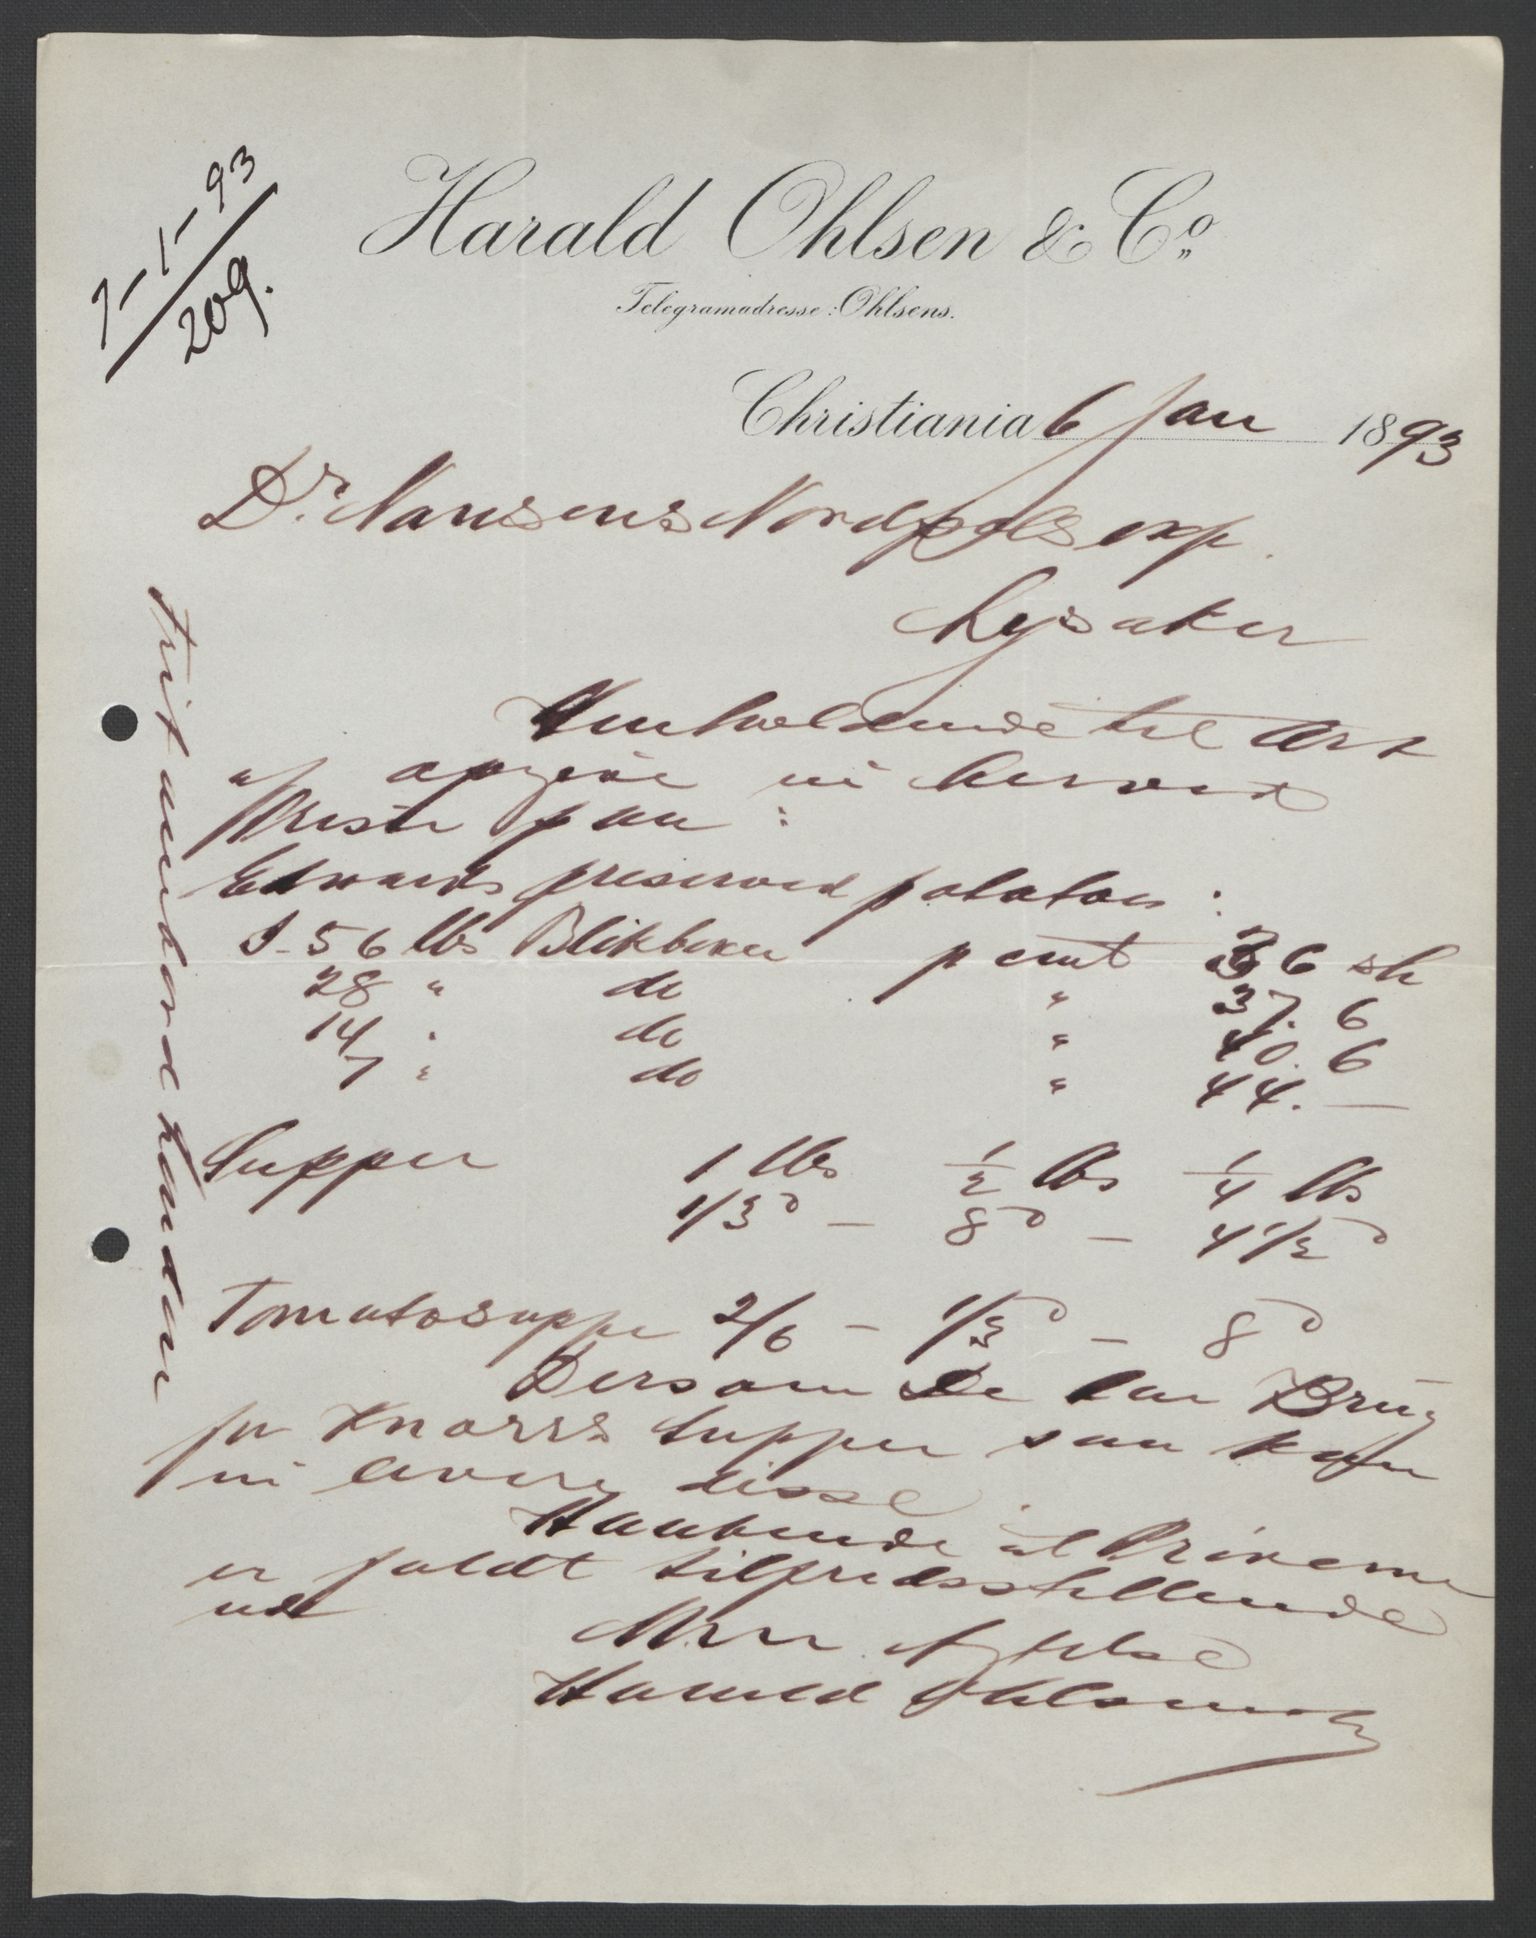 7-1-93
209.
Harald Ohlsen & Co.
Telegramadresse: Ohlsens.
Christiania 6 Jan 1893
Dr. Nansens Nordpols exp.
Lysaker
Henholdende til
af opgive vi herved
Prisen paa :
Edwards preserved potatoes :
I 56 lbs Blikboxer p cwt 36 sh
28 " do " 37. 6
14 " do " 40. 6
7 " do " 44. —
Supper 1 lbs 1/2 lbs 1/4 lbs
1/3 d — 8 d — 4 1/2 d
Tomatosuppe 2/6 — 1/3 d — 8 d
Dersom De har Brug
for Knorrs Supper saa kan
vi levere disse.
Haabende at Priserne
er faldt tilfredsstillende
ud
Med Agtelse
Harald Ohlsen & Co
frit ombord London